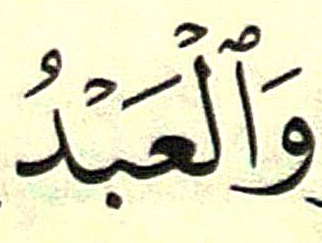 وَٱلْعَبْدُ